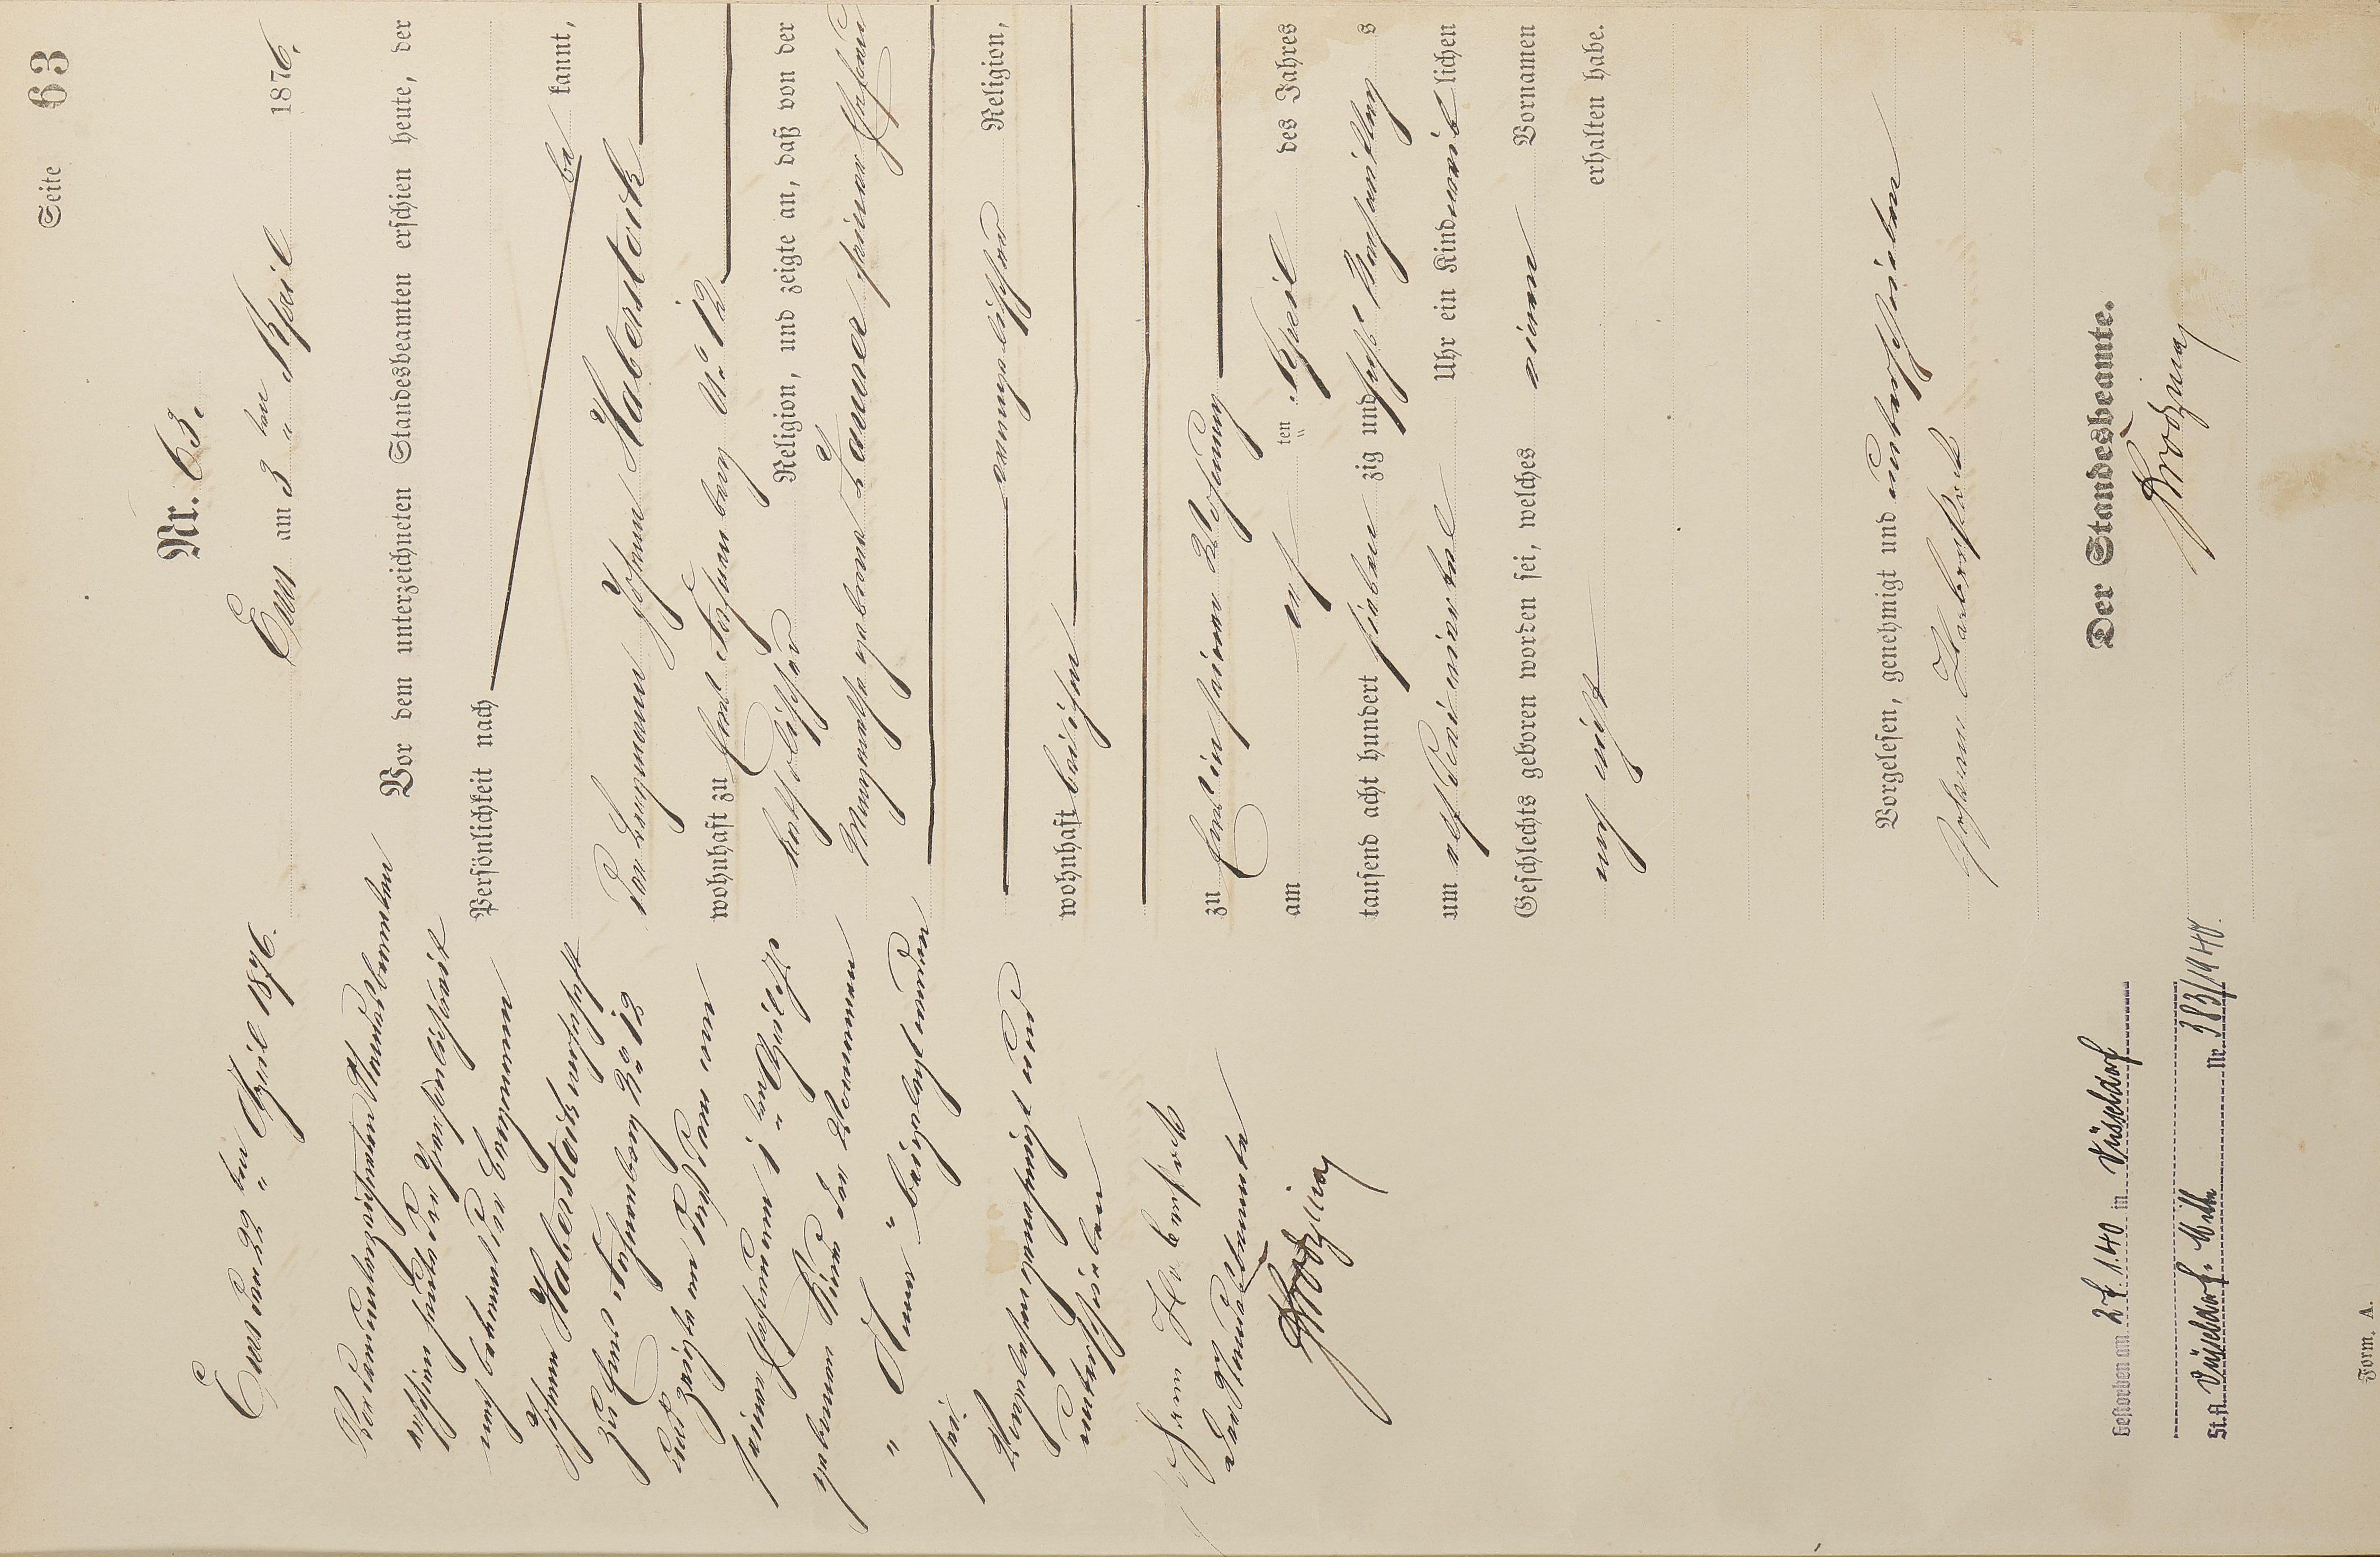 Seite 63
Nr. 63.
Ems am 3ten April 1876.
Vor dem unterzeichneten Standesbeamten erschien heute, der
Persönlichkeit nach
be kannt,
der Bergmann Johann Haberstock
wohnhaft zu Ems No 12
katholischer Religion, und zeigte an, daß von der
Margarethe geborene seiner Ehefrau
evangelischer Religion,
wohnhaft bei ihm
zu Ems in seiner Wohnung
am ersten April des Jahres
tausend acht hundert sieben zig und sechs Vormittags
um elf drei viertel Uhr ein Kind weib lichen
Geschlechts geboren worden sei, welches einen Vornamen
noch nicht erhalten habe.
Vorgelesen, genehmigt und unterschrieben
Johann Haberstock
Der Standesbeamte.
Ems den 22ten April 1876.
Vor dem unterzeichneten Standesbeamten
erschien heute der Persönlichkeit
nach bekannt der Bergmann
Johann Haberstock wohnhaft
zu Ems No 12
und zeigte an daß dem von
seiner Ehefrau am 1ten April
geborenen Kinde der Vornamen
" Anna " beigelegt worden
sei.
Vorgelesen genehmigt und
unterschrieben
Johann Haberstock
Der Standesbeamte
Gestorben am 27.1.40 in Düsseldorf
St.A. Düsseldorf-Mitte Nr. 383/1940.
Form. A.